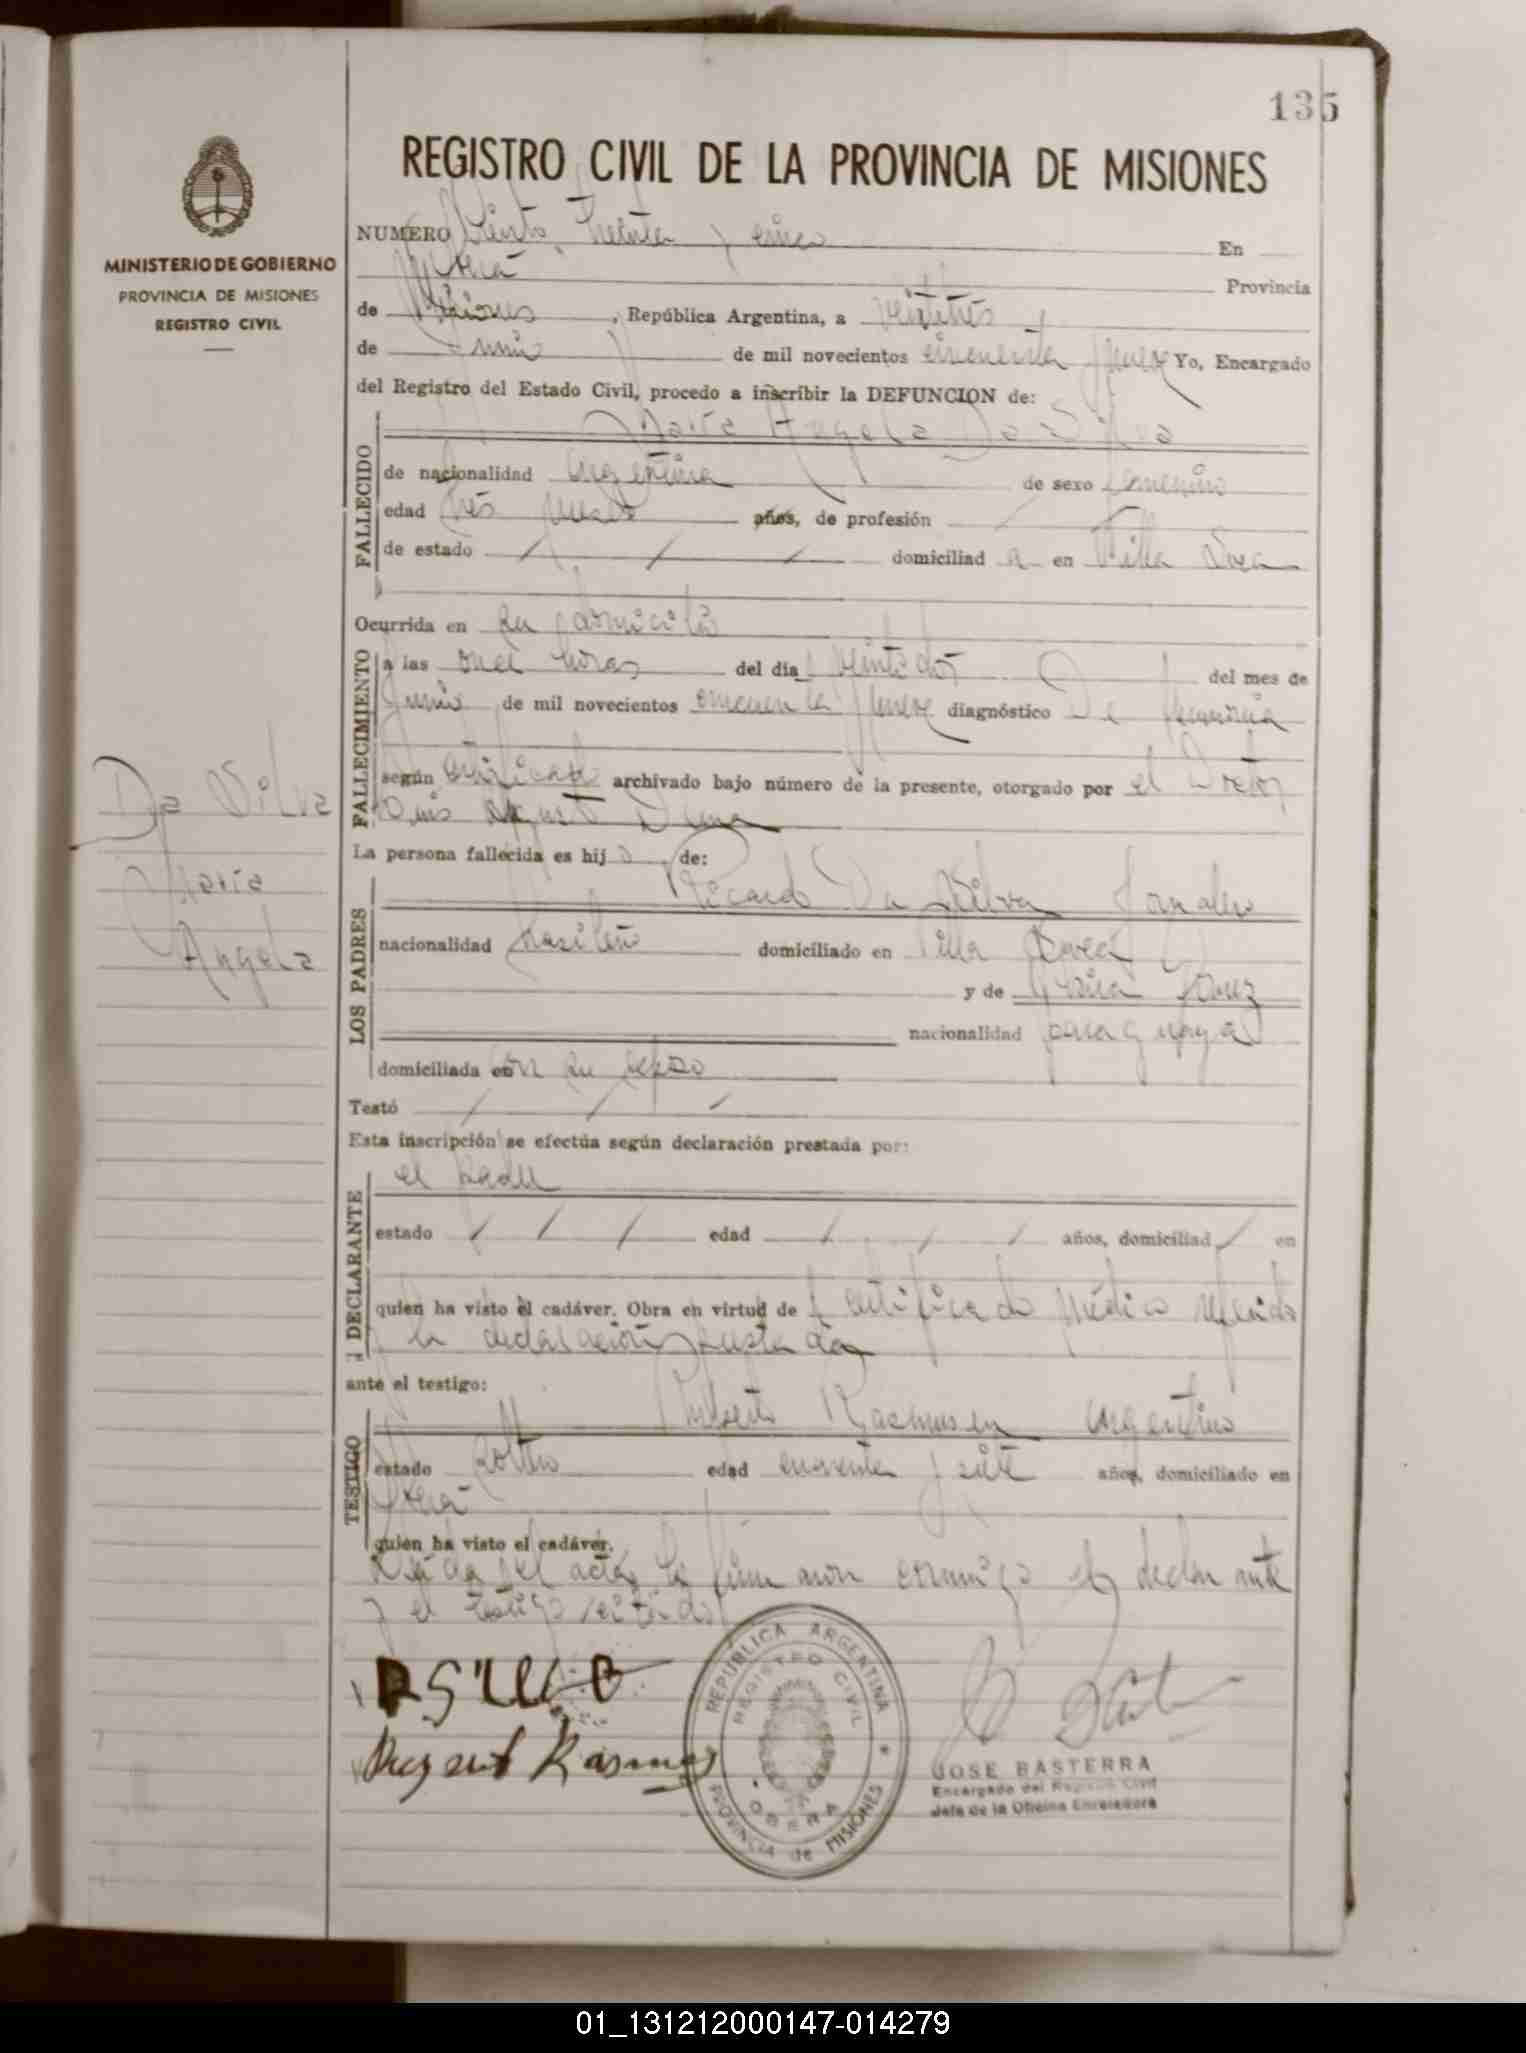 135
REGISTRO CIVIL DE LA PROVINCIA DE MISIONES
MINISTERIO DE GOBIERNO
PROVINCIA DE MISIONES
REGISTRO CIVIL
NUMERO Ciento treinta y cinco En
Oberá Provincia
de Misiones, República Argentina, a veintitrés
de Junio de mil novecientos cincuenta y nueve Yo, Encargado
del Registro del Estado Civil, procedo a inscribir la DEFUNCION de:
María Angela Da Silva
FALLECIDO
de nacionalidad argentina de sexo femenino
edad tres meses años, de profesión /
de estado / / / domiciliad a en Villa
Ocurrida en su domicilio
FALLECIMIENTO
a las once horas del día veintidos del mes de
Junio de mil novecientos cincuenta y nueve diagnóstico
según certificado archivado bajo número de la presente, otorgado por el Doctor
Luis Augusto
Da Silva
María
Angela
La persona fallecida es hij a de:
LOS PADRES
Ricardo Da Silva
nacionalidad brasileño domiciliado en Villa
y de
nacionalidad paraguaya
domiciliada en su esposo
Testó / / /
Esta inscripción se efectúa según declaración prestada por:
DECLARANTE
el padre
estado / / / edad / / / años, domiciliad / en
quien ha visto el cadáver. Obra en virtud de certificado médico referido
y la declaración prestada
ante el testigo:
TESTIGO
Rasmusen argentino
estado soltero edad cuarenta y siete años, domiciliado en
Oberá
quien ha visto el cadáver.
Leída el acta, la firmaron conmigo el declarante
y el testigo citado
REPUBLICA ARGENTINA
REGISTRO CIVIL
OBERA
PROVINCIA de MISIONES
JOSE BASTERRA
Encargado del Registro Civil
Jefe de la Oficina Enroladora
01_131212000147-014279